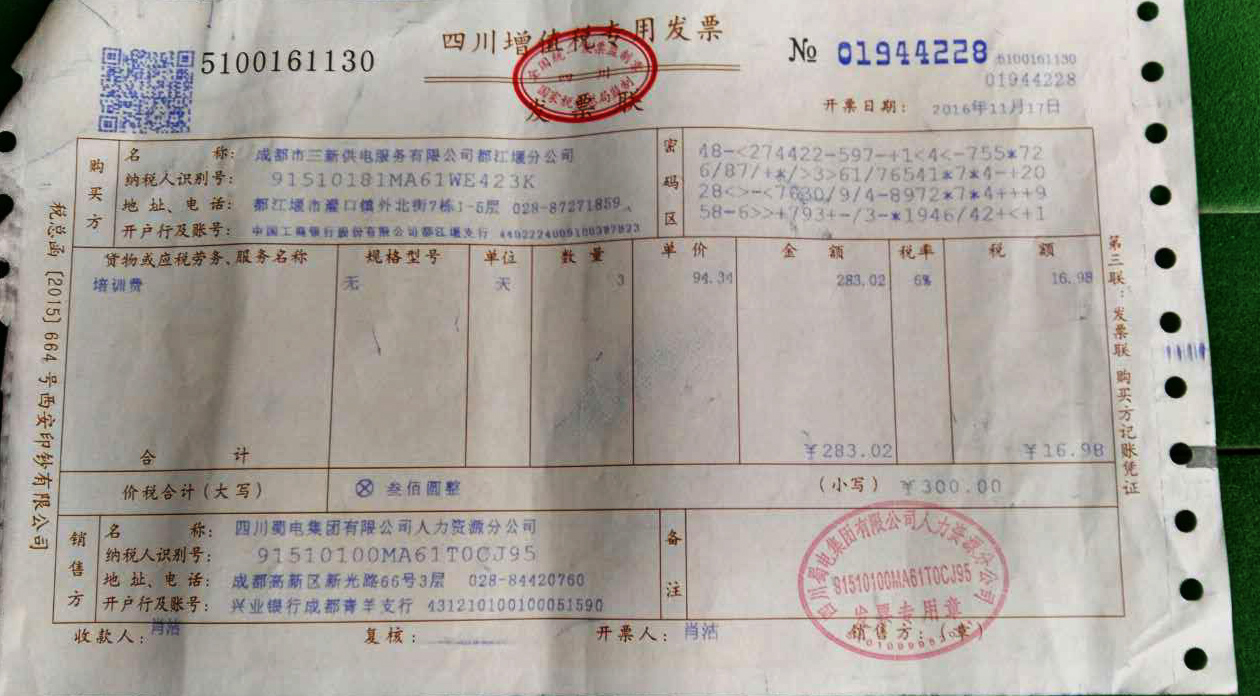 5100161130
四川增值税专用发票
发票联
全国统一发票监制章
四川
国家税务总局监制
№ 01944228
5100161130
01944228
开票日期: 2016年11月17日
购买方
名 称: 成都市三新供电服务有限公司都江堰分公司
纳税人识别号: 91510181MA61WE423K
地址、电话: 都江堰市灌口镇外北街7栋1-5层 028-87271859
开户行及账号: 中国工商银行股份有限公司都江堰支行
密码区
48-<274422-597-+1<4<-755*72
6/87/+*/>3>61/76541*7*4-+20
28<>-<7630/9/4-8972*7*4+++9
58-6>>+793+-/3-*1946/42+<+1
货物或应税劳务、服务名称 规格型号 单位 数量 单价 金额 税率 税额
培训费 无 天 3 94.34 283.02 6% 16.98
合 计 ¥283.02 ¥16.98
价税合计(大写) ⊗ 叁佰圆整 (小写) ¥300.00
销售方
名 称: 四川蜀电集团有限公司人力资源分公司
纳税人识别号: 91510100MA61T0CJ95
地址、电话: 成都高新区新光路66号3层 028-84420760
开户行及账号: 兴业银行成都青羊支行 431210100100051590
备注
四川蜀电集团有限公司人力资源分公司
91510100MA61T0CJ95
发票专用章
收款人: 肖洁 复核: 开票人: 肖洁 销售方:(章)
税总函〔2015〕664号西安印钞有限公司
第三联:发票联 购买方记账凭证